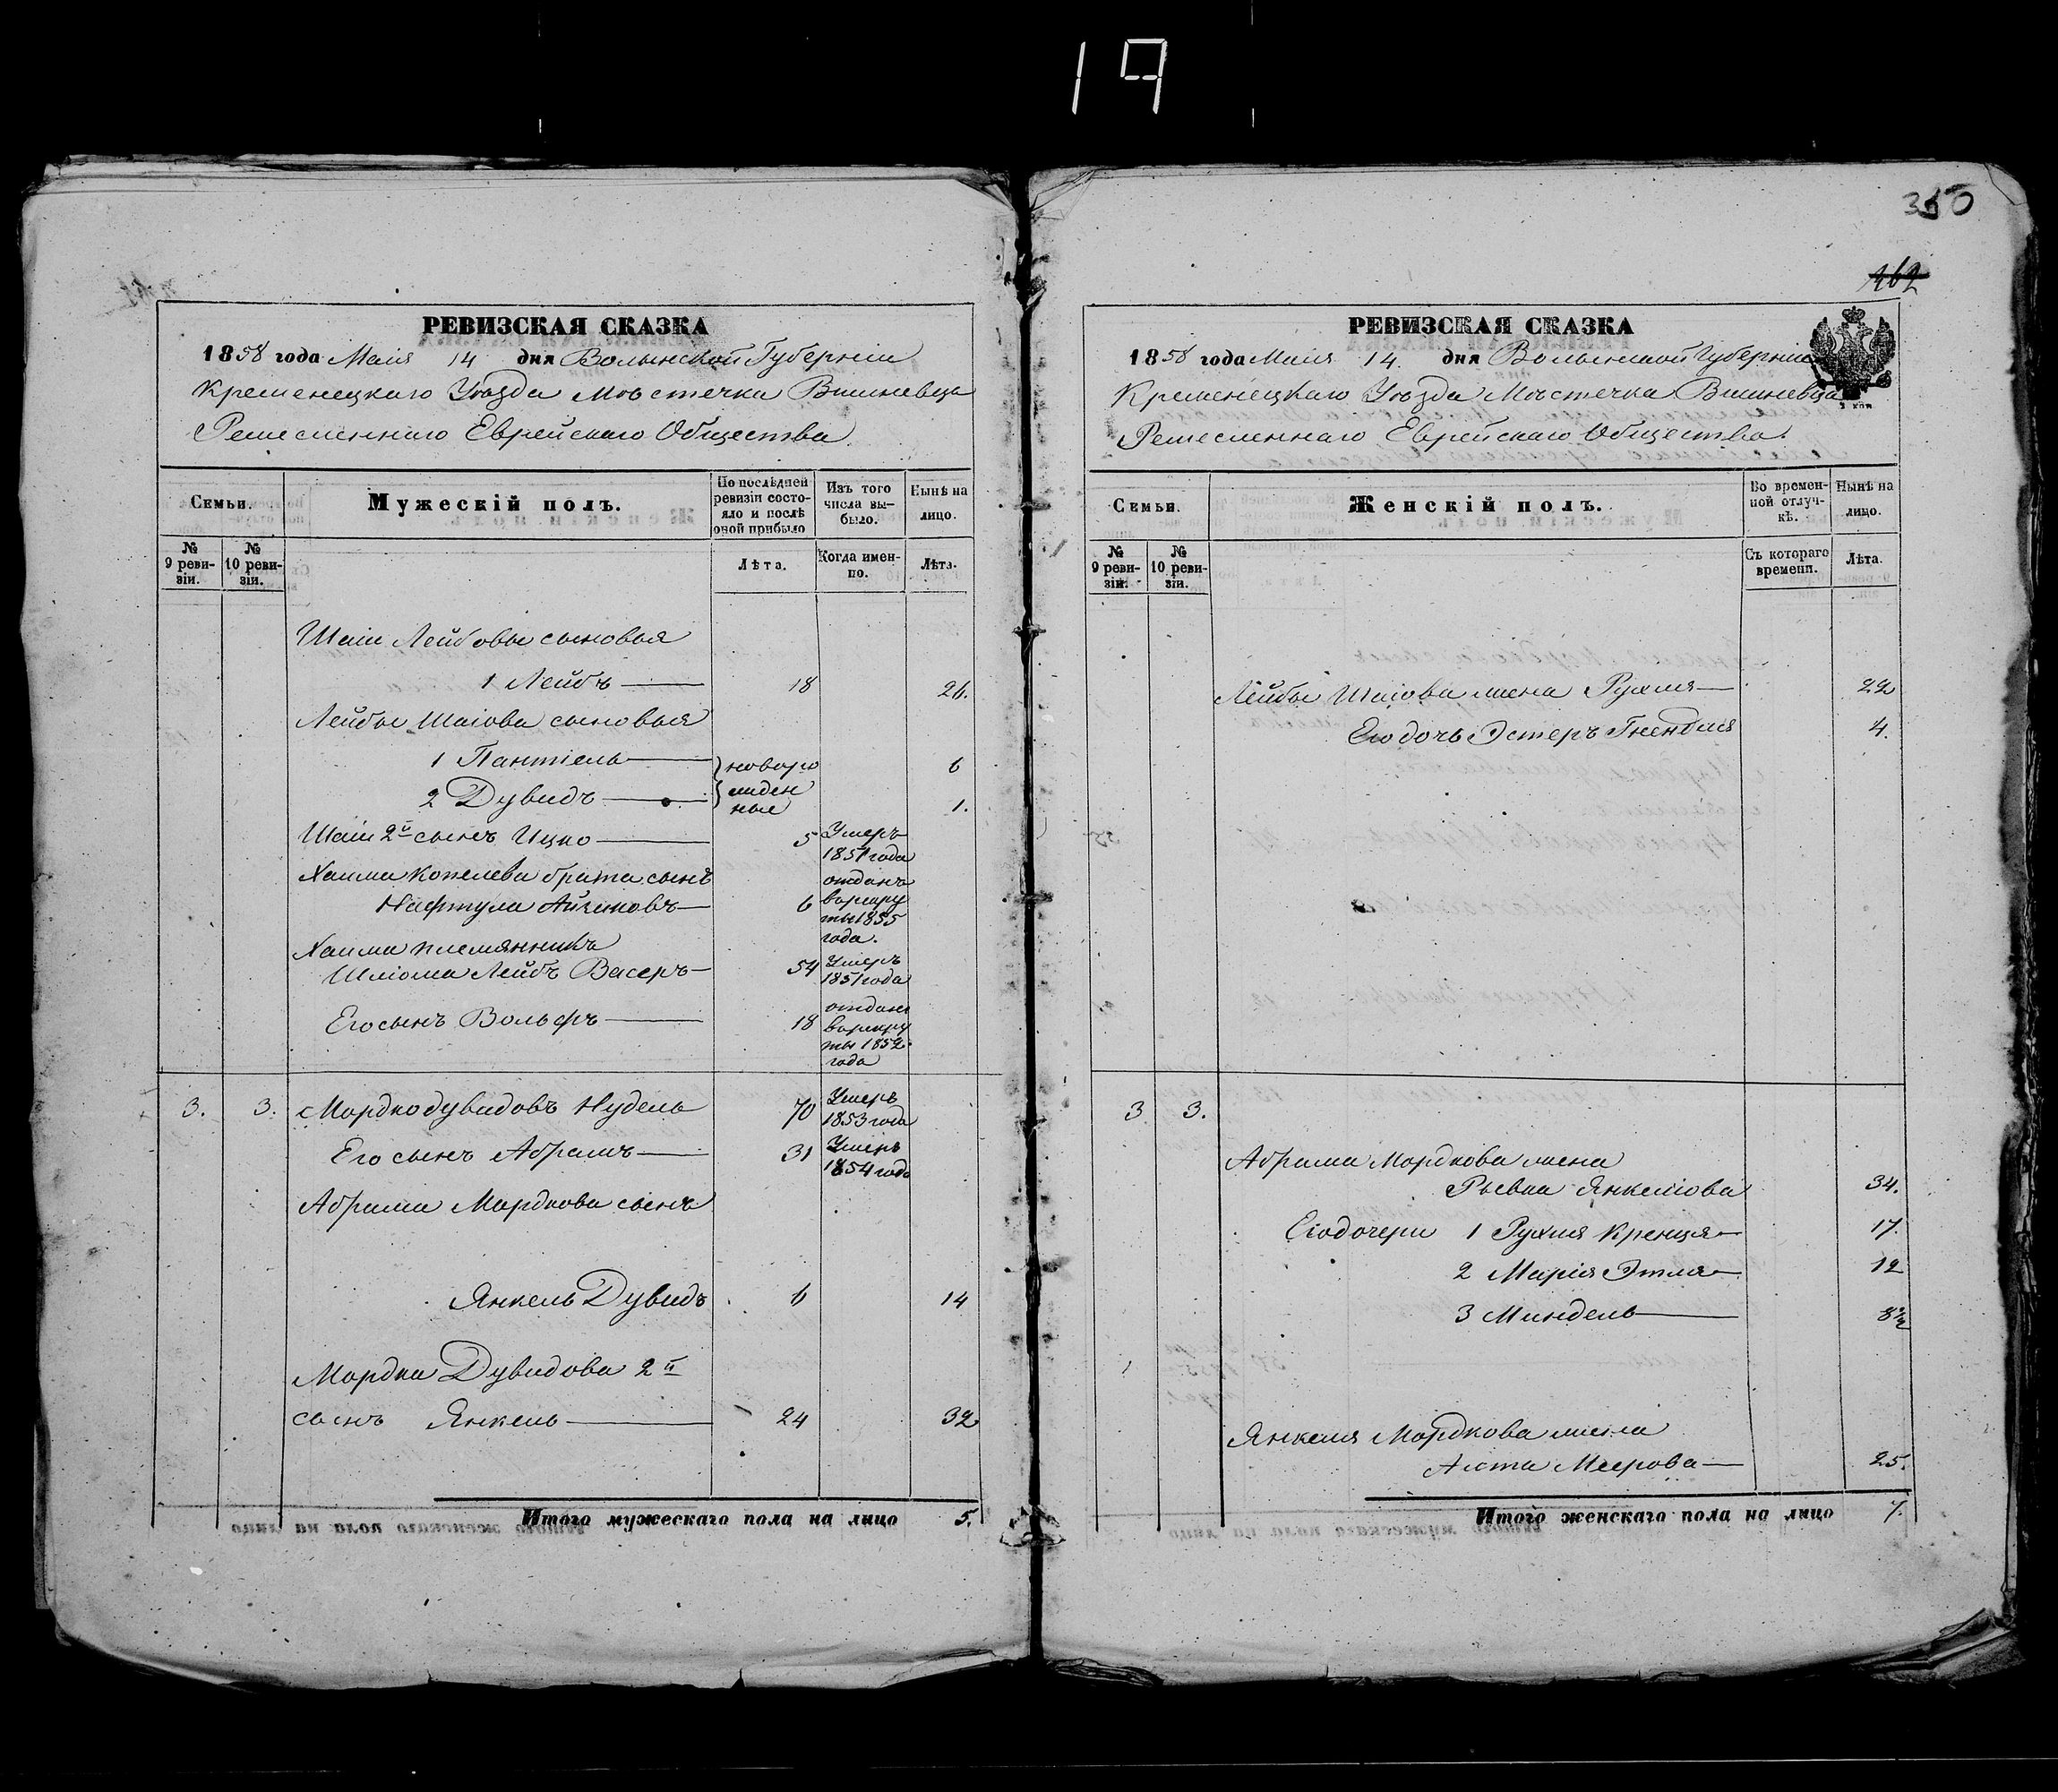 19
РЕВИЗСКАЯ СКАЗКА
1858 года Маія 14 дня Волынской Губерніи
Кременецкаго Уѣзда Мѣстечка Вишневца
Ремесленнаго Еврейскаго Общества.
Семьи.
Мужескій полъ.
По послѣдней ревизіи состояло и послѣ оной прибыло
Изъ того числа выбыло.
Нынѣ на лицо.
№ 9 ревизіи.
№ 10 ревизіи.
Лѣта.
Когда именно.
Лѣта.
Шаіи Лейбовы сыновья
1 Лейбъ 18 26.
Лейбы Шаіова сыновья
1 Пантіель новорожденные 6
2 Дувидъ 1.
Шаіи 2й сынъ Ицко 5 Умеръ 1851 года
Хаима Копелева брата сынъ
Нафтула Айзиковъ 6 отданъ в рекруты 1855 года.
Хаима племянникъ
Шліома Лейбъ Васеръ 54 Умеръ 1851 года
Его сынъ Вольфъ 18 отданъ в рекруты 1852 года
3. 3. Мордко Дувидовъ Нудель 70 Умеръ 1853 года
Его сынъ Абрамъ 31 Умеръ 1854 года
Абрама Мордкова сынъ
Янкель Дувидъ 6 14
Мордка Дувидова 2й
сынъ Янкель 24 32
Итого мужескаго пола на лицо 5.
350
262
РЕВИЗСКАЯ СКАЗКА
1858 года Маія 14. дня Волынской Губерніи
Кременецкаго Уѣзда Мѣстечка Вишневца
Ремесленнаго Еврейскаго Общества.
Семьи.
Женскій полъ.
Во временной отлучкѣ.
Нынѣ на лицо.
№ 9 ревизіи.
№ 10 ревизіи.
Съ котораго времени.
Лѣта.
Лейбы Шаіова жена Рухля 22
Его дочь Эстеръ Гнендля 4.
3 3.
Абрама Мордкова жена
Рывка Янкеліова 34.
Его дочери 1 Рухля Кренця 17.
2 Марія Этля 12
3 Миндель 8½
Янкеля Мордкова жена
Меерова 25.
Итого женскаго пола на лицо 7.